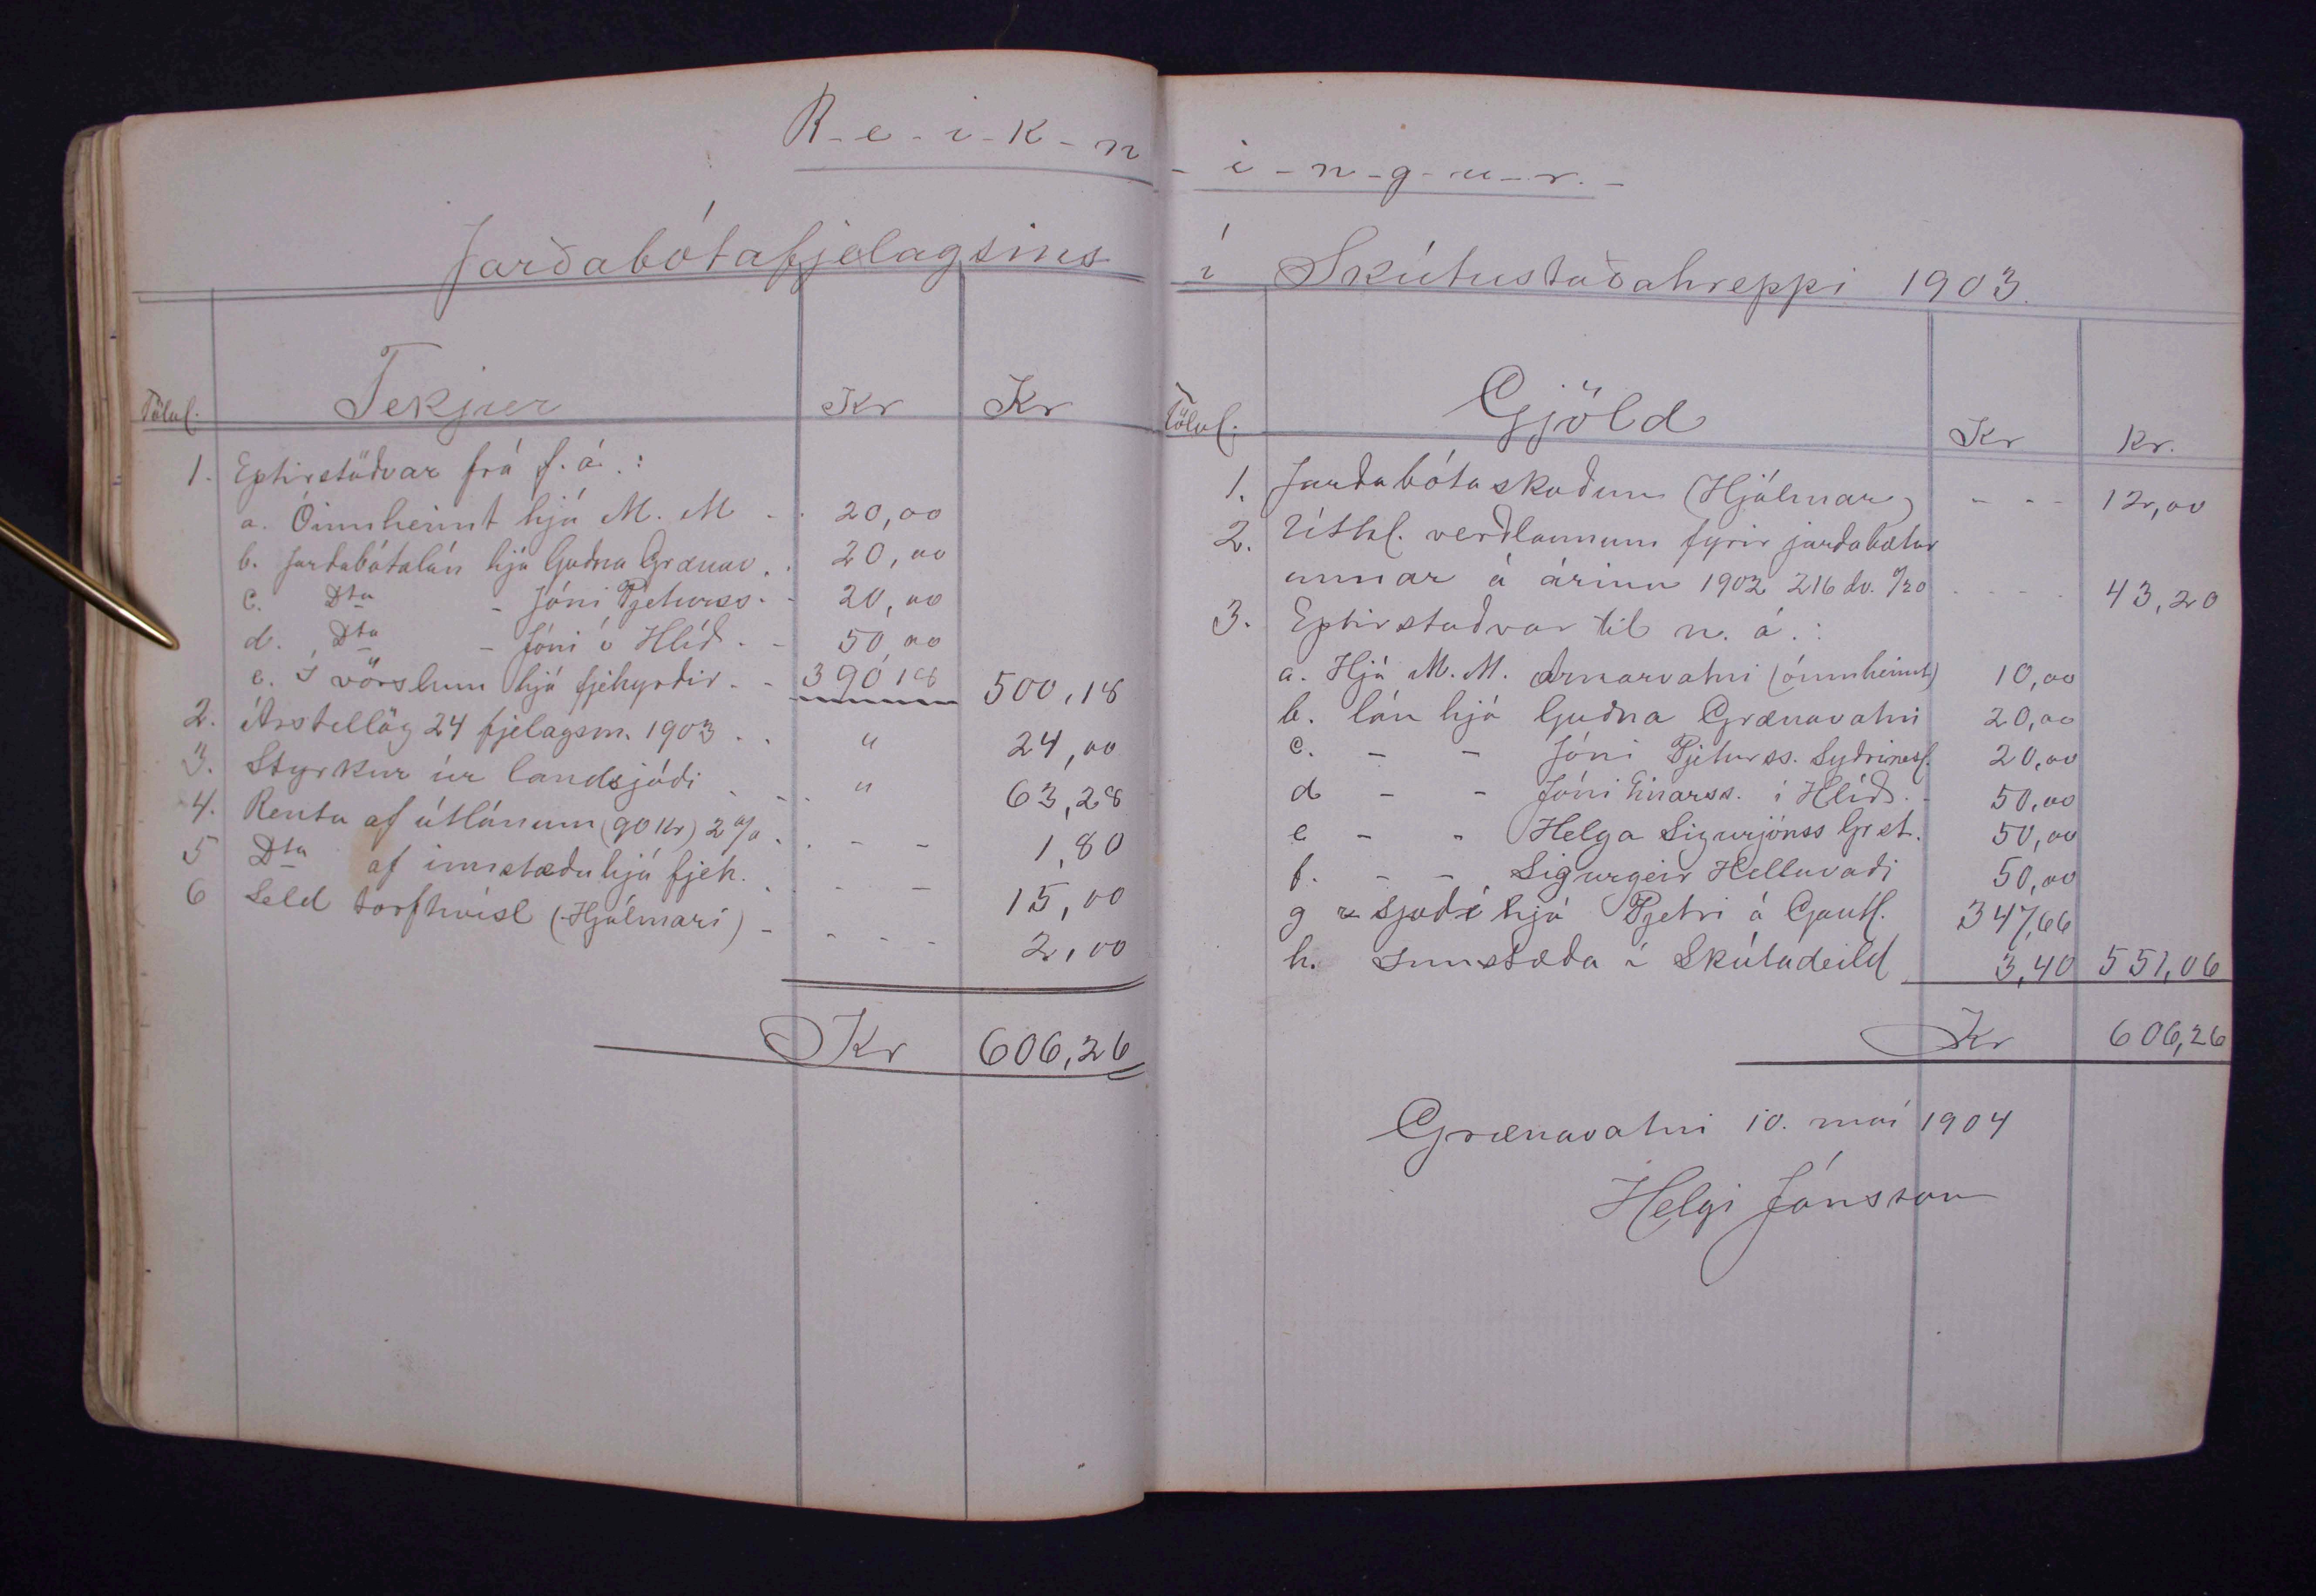 R-e-i-k-n-i-n-g-u-r.-
Jarðabótafjelagsins í Skútustaðahreppi 1903.
Tölul. Tekjur Kr Kr
1. Eptirstöðvar frá f. á.:
a. Óinnheimt hjá M. M - - 20,00
b. Jarðabótalán hjá Guðna Grænav. . 20,00
c. Dto - Jóni Pjeturss. - 20,00
d. Dto - Jóni í Hlíð - - 50,00
e. Í vörslum hjá fjehyrðir - - 390,18 500,18
2. Árstillög 24 fjelagsm. 1903 . . " 24,00
3. Styrkur úr landsjóði - - " 63,28
4. Renta af útlánum (90 Kr) 2 % . . - - 1,80
5 Dto af innstæðu hjá fjeh. . . - - 15,00
6 Seld torfkvísl (Hjálmari) - - - - 2,00
Kr 606,26
Tölul. Gjöld Kr Kr.
1. Jarðabótaskoðun (Hjálmar) - - - 12,00
2. Úthl. verðlaunum fyrir jarðabætur
unnar á árinu 1902 216 dv. 0/20 - - - - 43,20
3. Eptirstöðvar til n. á.:
a. Hjá M. M. Arnarvatni (óinnheimt) 10,00
b. lán hjá Guðna Grænavatni 20,00
c. - - Jóni Pjeturss. Syðrinesl. 20,00
d - - Jóni Einarss. í Hlíð. - 50,00
e - - Helga Sigurjónss Grst. 50,00
f. - - Sigurgeir Helluvaði 50,00
g í sjóði hjá Pjetri á Gautl. 347,66
h. Innstæða í Skútudeild 3,40 551,06
Kr 606,26
Grænavatni 10. maí 1904
Helgi Jónsson